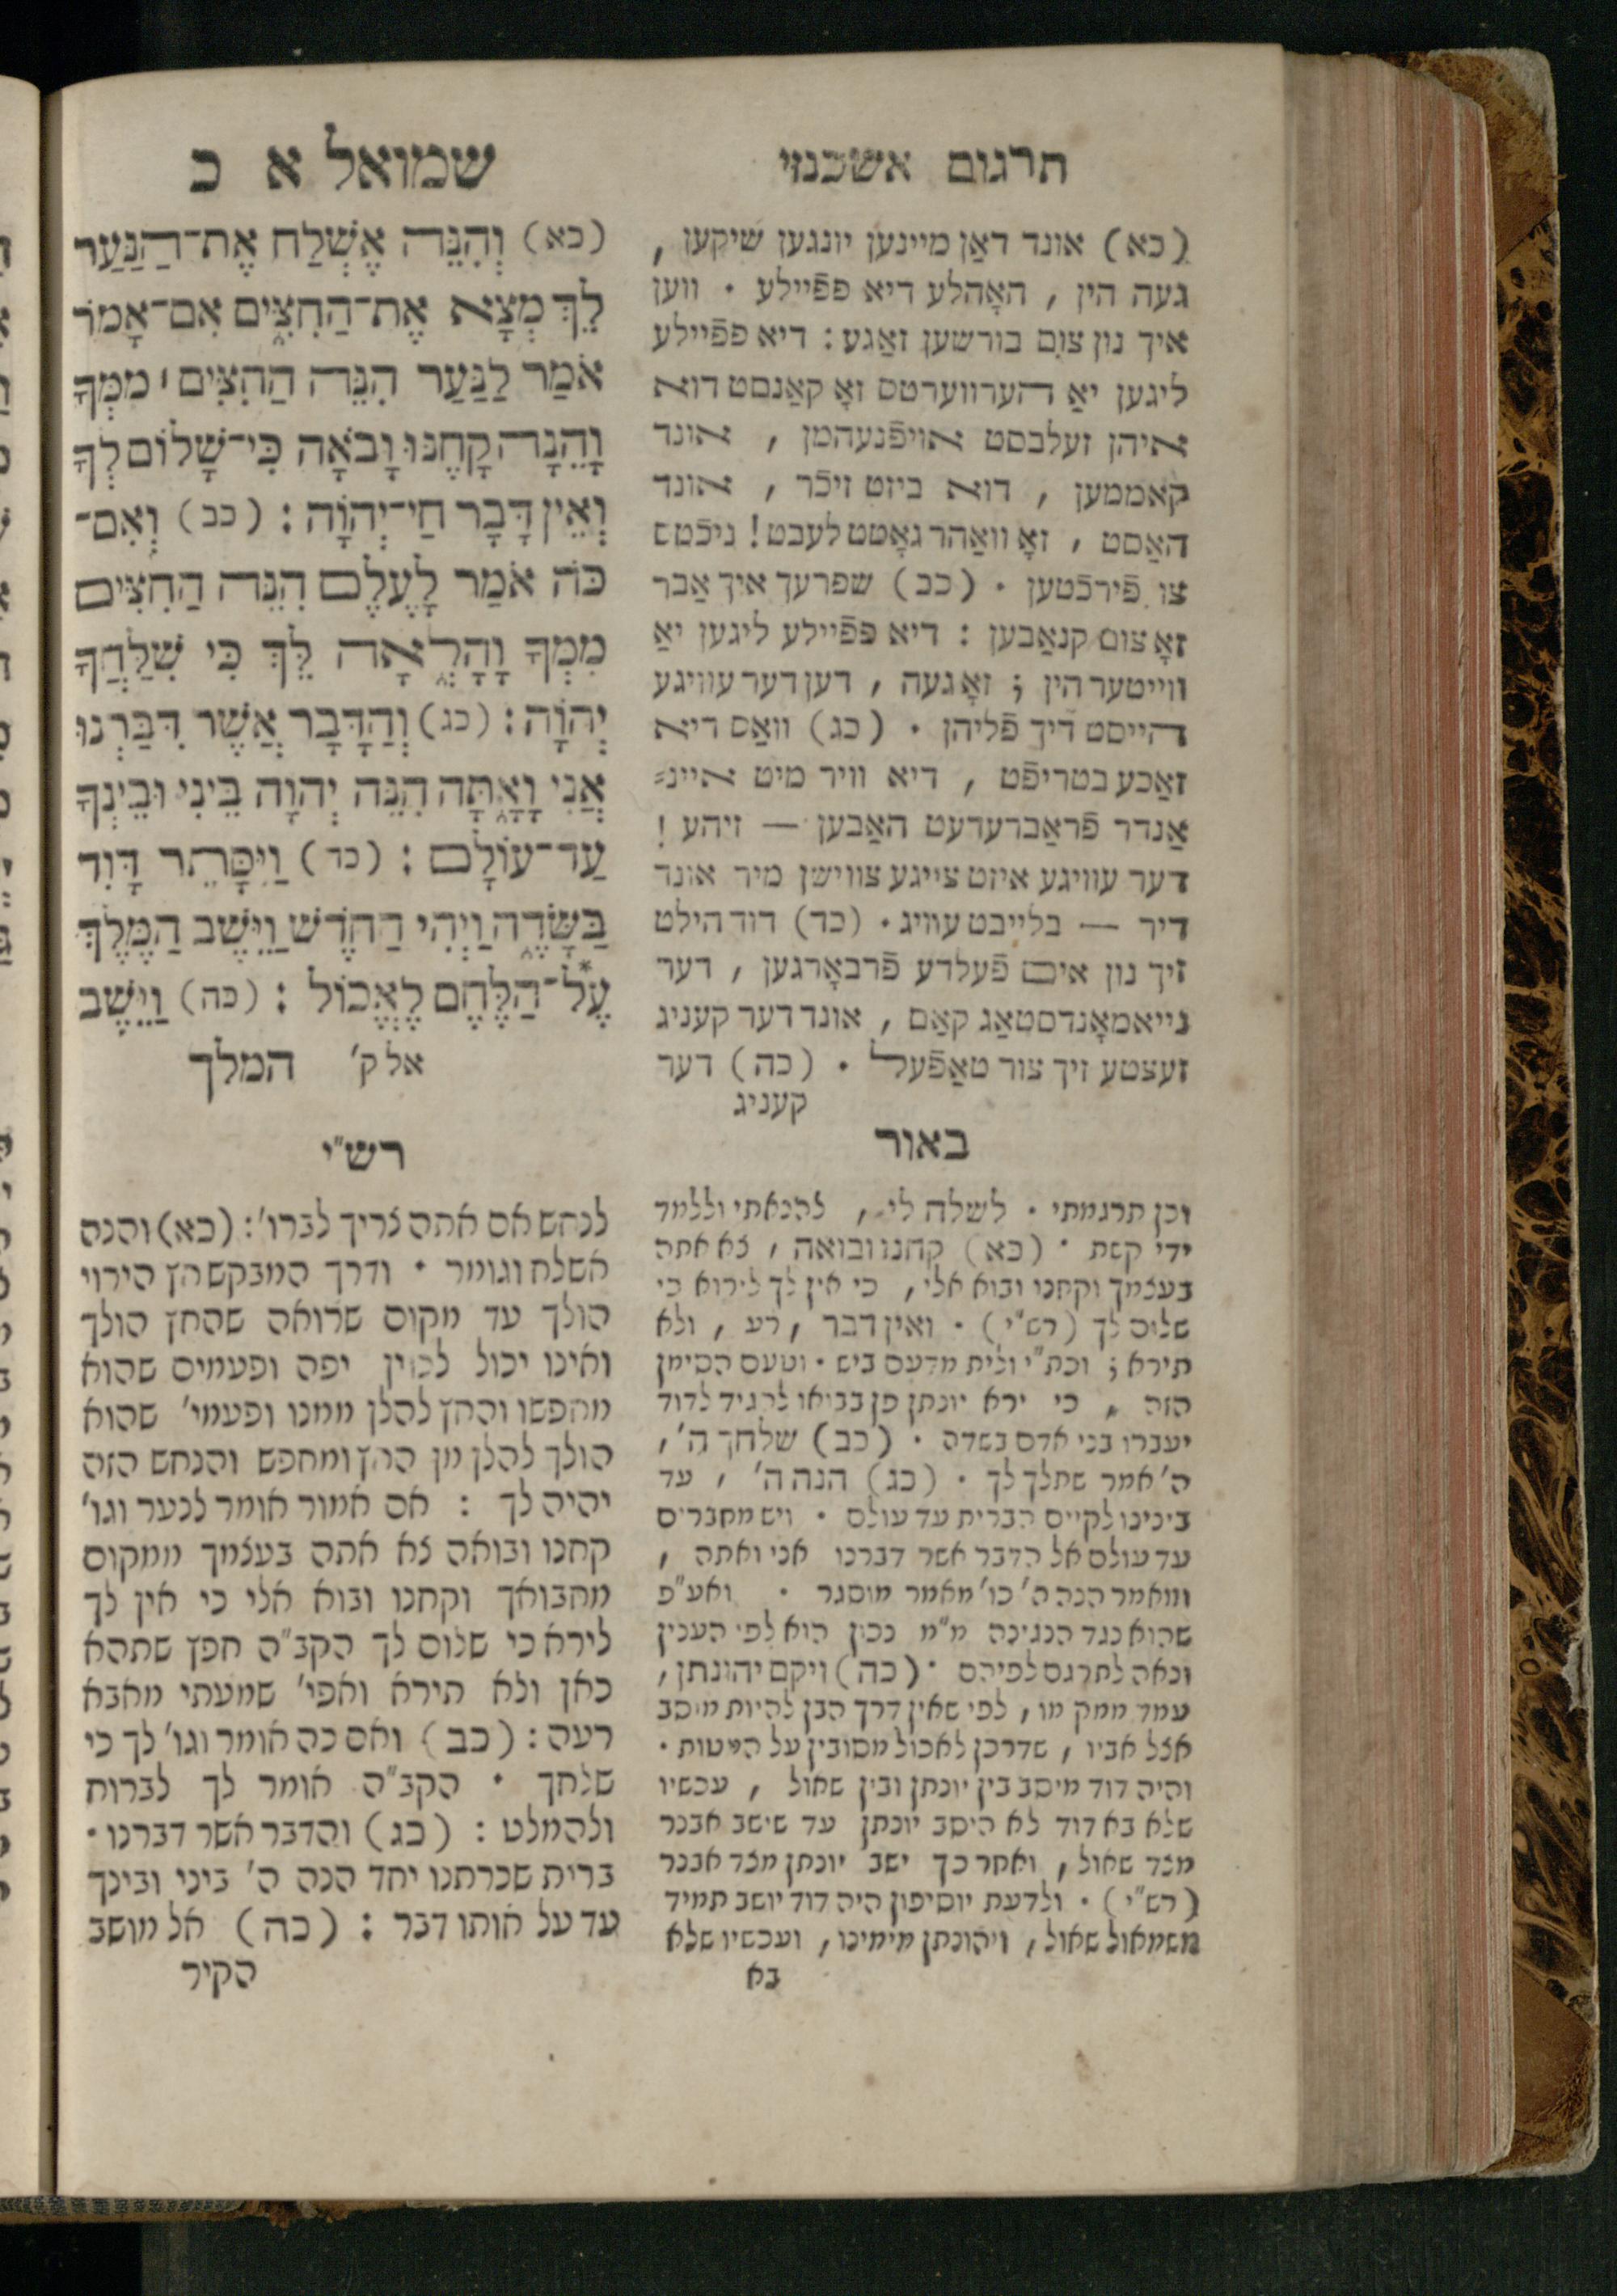 תרגום אשכנזי
(כא) אונד דאַן מיינען יונגען שיקען ,
געה הין , האָהלע דיא פפֿיילע · ווען
איך נון צום בורשען זאַגע : דיא פפֿיילע
ליגען יאַ הערווערטס זאָ קאַנסט דוא
איהן זעלבסט אויפֿנעהמן , אונד
קאָממען , דוא ביזט זיכֿר , אונד
האַסט , זאָ וואַהר גאָטט לעבט ! ניכֿטס
צו פֿירכֿטען · (כב) שפרעך איך אַבר
זאָ צום קנאַבען : דיא פפֿיילע ליגען יאַ
ווייטער הין ; זאָ געה , דען דער עוויגע
הייסט דיך פֿליהן · (כג) וואַס דיא
זאַכע בטריפֿט , דיא וויר מיט איינ=
אַנדר פֿראַברעדעט האַבען — זיהע !
דער עוויגע איזט צייגע צווישן מיר אונד
דיר — בלייבט עוויג · (כד) דוד הילט
זיך נון אים פֿעלדע פֿרבאָרגען , דער
נייאמאָנדסטאַג קאַם , אונד דער קעניג
זעצטע זיך צור טאַפֿעל · (כה) דער
קעניג
שמואל א כ
(כא) וְהִנֵּה אֶשְׁלַח אֶת־הַנַּעַר
לֵךְ מְצָא אֶת־הַחִצִּים אִם־אָמֹר
אֹמַר לַנַּעַר הִנֵּה הַחִצִּים ׀ מִמְּךָ
וָהֵנָּה קָחֶנּוּ וָבֹאָה כִּי־שָׁלוֹם לְךָ
וְאֵין דָּבָר חַי־יְהוָֹה : (ככ) וְאִם־
כֹּה אֹמַר לָעֶלֶם הִנֵּה הַחִצִּים
מִמְּךָ וָהָלְאָה לֵךְ כִּי שִׁלַּחֲךָ
יְהוָֹה : (כג) וְהַדָּבָר אֲשֶׁר דִּבַּרְנוּ
אֲנִי וָאָתָּה הִנֵּה יְהוָה בֵּינִי וּבֵינְךָ
עַד־עוֹלָם : (כד) וַיִּסָּתֵר דָּוִד
בַּשָּׂדֶה וַיְהִי הַחֹדֶשׁ וַיֵּשֶׁב הַמֶּלֶךְ
עַל*־הַלֶּחֶם לֶאֱכוֹל : (כה) וַיֵּשֶׁב
אל ק׳ המלך
באור
וכן תרגמתי · לשלח לי , להנאתי וללמד
ידי קשת · (כא) קחנו ובואה , צא אתה
בעצמך וקחנו ובוא אלי , כי אין לך לירוא כי
שלום לך (רש״י) · ואין דבר , רע , ולא
תירא ; וכת״י ולית מדעם ביש · וטעם הסימן
הזה , כי ירא יונתן פן בבואו להגיד לדוד
יעברו בני אדם בשדה · (כב) שלחך ה׳ ,
ה׳ אמר שתלך לך · (כג) הנה ה׳ , עד
בינינו לקיים הברית עד עולם · ויש מחברים
עד עולם אל הדבר אשר דברנו אני ואתה ,
ומאמר הנה ה׳ כו׳ מאמר מוסגר · ואע״פ
שהוא נגד הנגינה מ״מ נכון הוא לפי הענין
ונאה לתרגם לפיהם · (כה) ויקם יהונתן ,
עמד ממקומו , לפי שאין דרך הבן להיות מיסב
אצל אביו , שדרכן לאכול מסובין על המטות ·
והיה דוד מיסב בין יונתן ובין שאול , עכשיו
שלא בא דוד לא היסב יונתן עד שישב אבנר
מצד שאול , ואחר כך ישב יונתן מצד אבנר
(רש״י) · ולדעת יוסיפון היה דוד יושב תמיד
משמאול שאול , ויהונתן מימינו , ועכשיו שלא
בא
רש״י
לנחש אם אתה צריך לברו׳ : (כא) והנה
אשלח וגומר · ודרך המבקש חץ הירוי
הולך עד מקום שרואה שהחץ הולך
ואינו יכול לכוין יפה ופעמים שהוא
מחפשו והחץ להלן ממנו ופעמי׳ שהוא
הולך להלן מן החץ ומחפש והנחש הזה
יהיה לך : אם אמור אומר לנער וגו׳
קחנו ובואה צא אתה בעצמך ממקום
מחבואך וקחנו ובוא אלי כי אין לך
לירא כי שלום לך הקב״ה חפץ שתהא
כאן ולא תירא ואפי׳ שמעתי מאבא
רעה : (כב) ואם כה אומר וגו׳ לך כי
שלחך · הקב״ה אומר לך לברוח
ולהמלט : (כג) והדבר אשר דברנו ·
ברית שכרתנו יחד הנה ה׳ ביני ובינך
עד על אותו דבר : (כה) אל מושב
הקיר